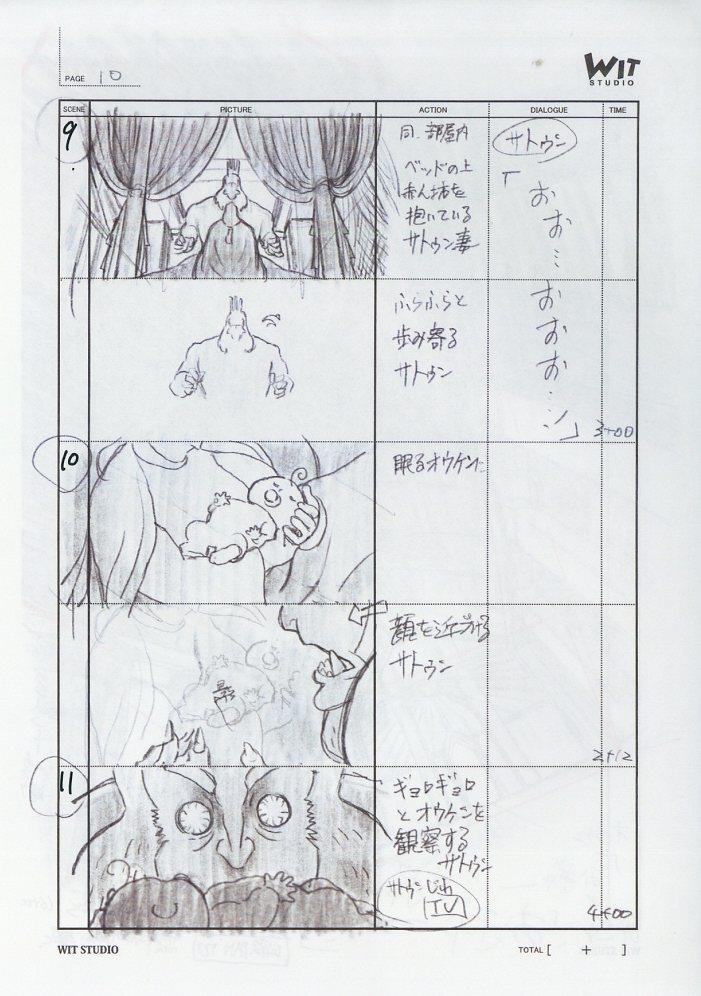 PAGE 10
WIT
STUDIO
SCENE
PICTURE
ACTION
DIALOGUE
TIME
9
同.部屋内
ベッドの上
赤ん坊を
抱いている
サトゥン妻
サトゥン
「おお…
おおお…ン」
ふらふらと
歩み寄る
サトゥン
3+00
10
眠るオウケン
顔を近づける
サトゥン
2+12
11
ギョロギョロ
とオウケンを
観察する
サトゥン
サトゥンじわ
TU
4+00
WIT STUDIO
TOTAL [ + ]